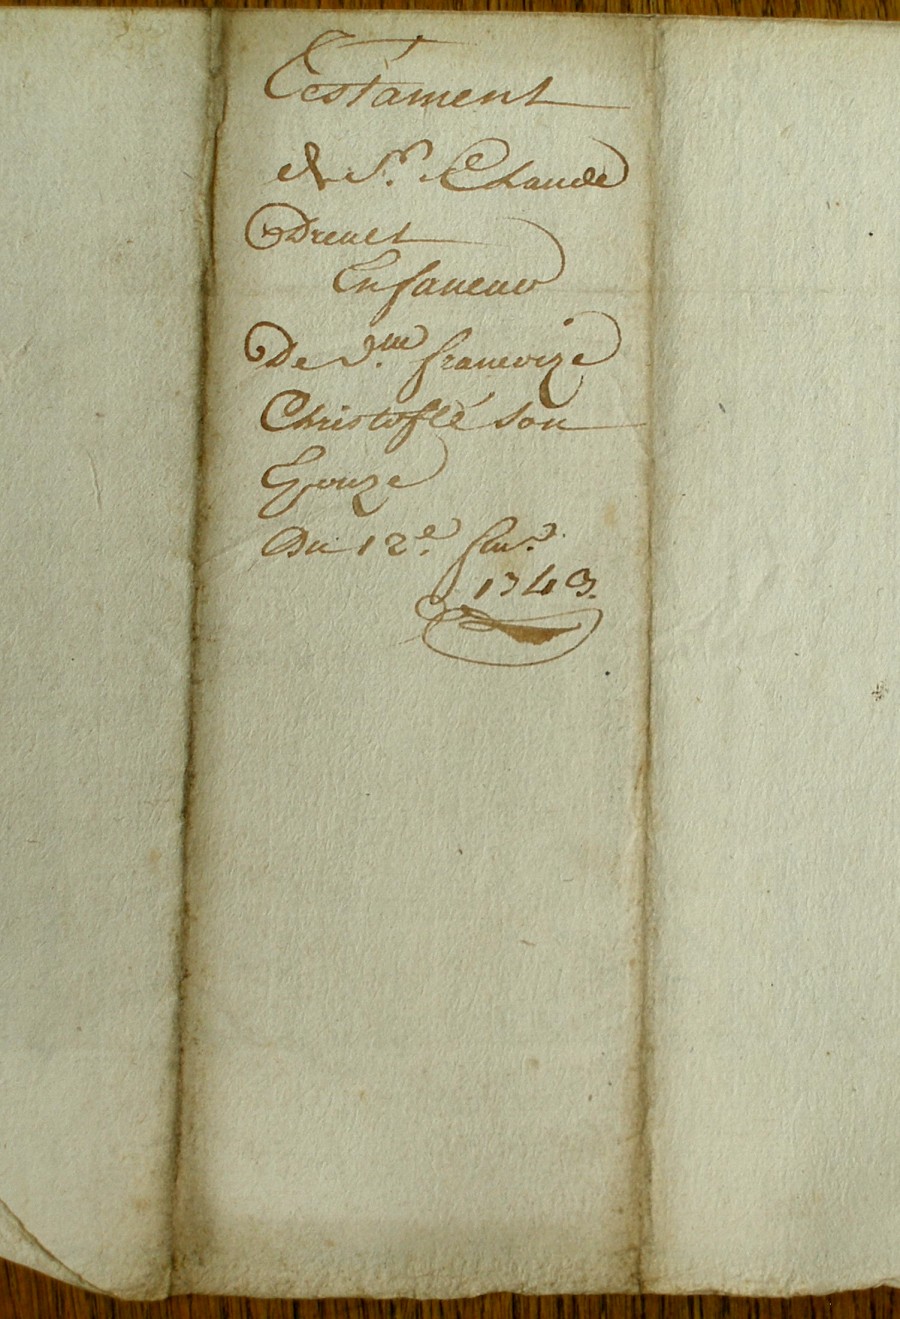 Testament
de Sr. Claude
Drevet
En faveur
De dlle francoize
Christoflé son
Epouze
Du 12e. feur.
1743.